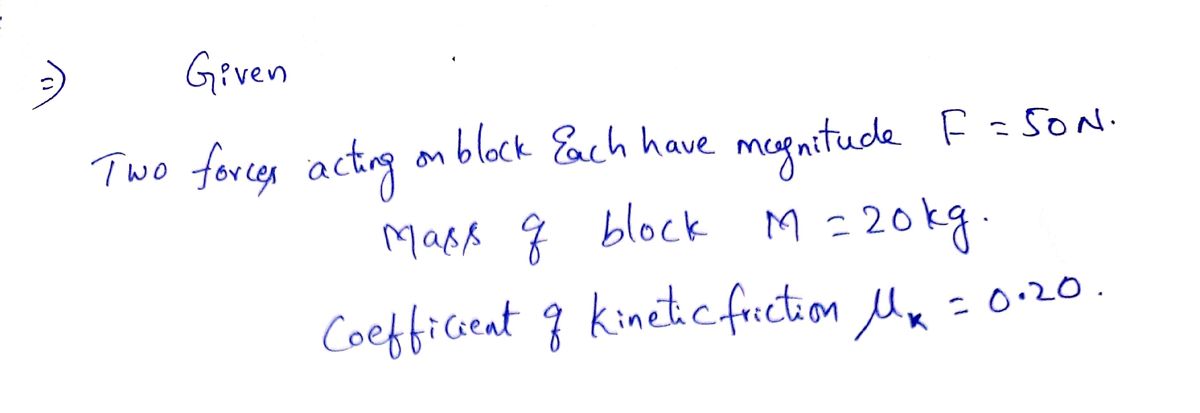 ⇒ Given
Two forces acting on block Each have magnitude F = 50N.
Mass of block M = 20kg.
Coefficient of kinetic friction μk = 0.20.